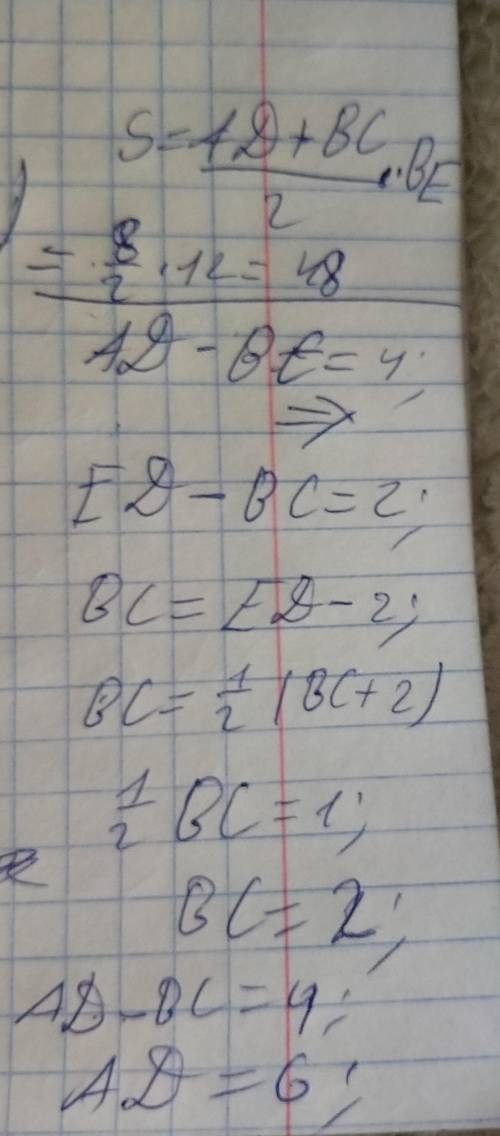 S = (AD + BC)/2 · BE
= 8/2 · 12 = 48
AD - BC = 4;
⇒
ED - BC = 2;
BC = ED - 2;
BC = 1/2 (BC + 2)
1/2 BC = 1;
BC = 2;
AD - BC = 4;
AD = 6;